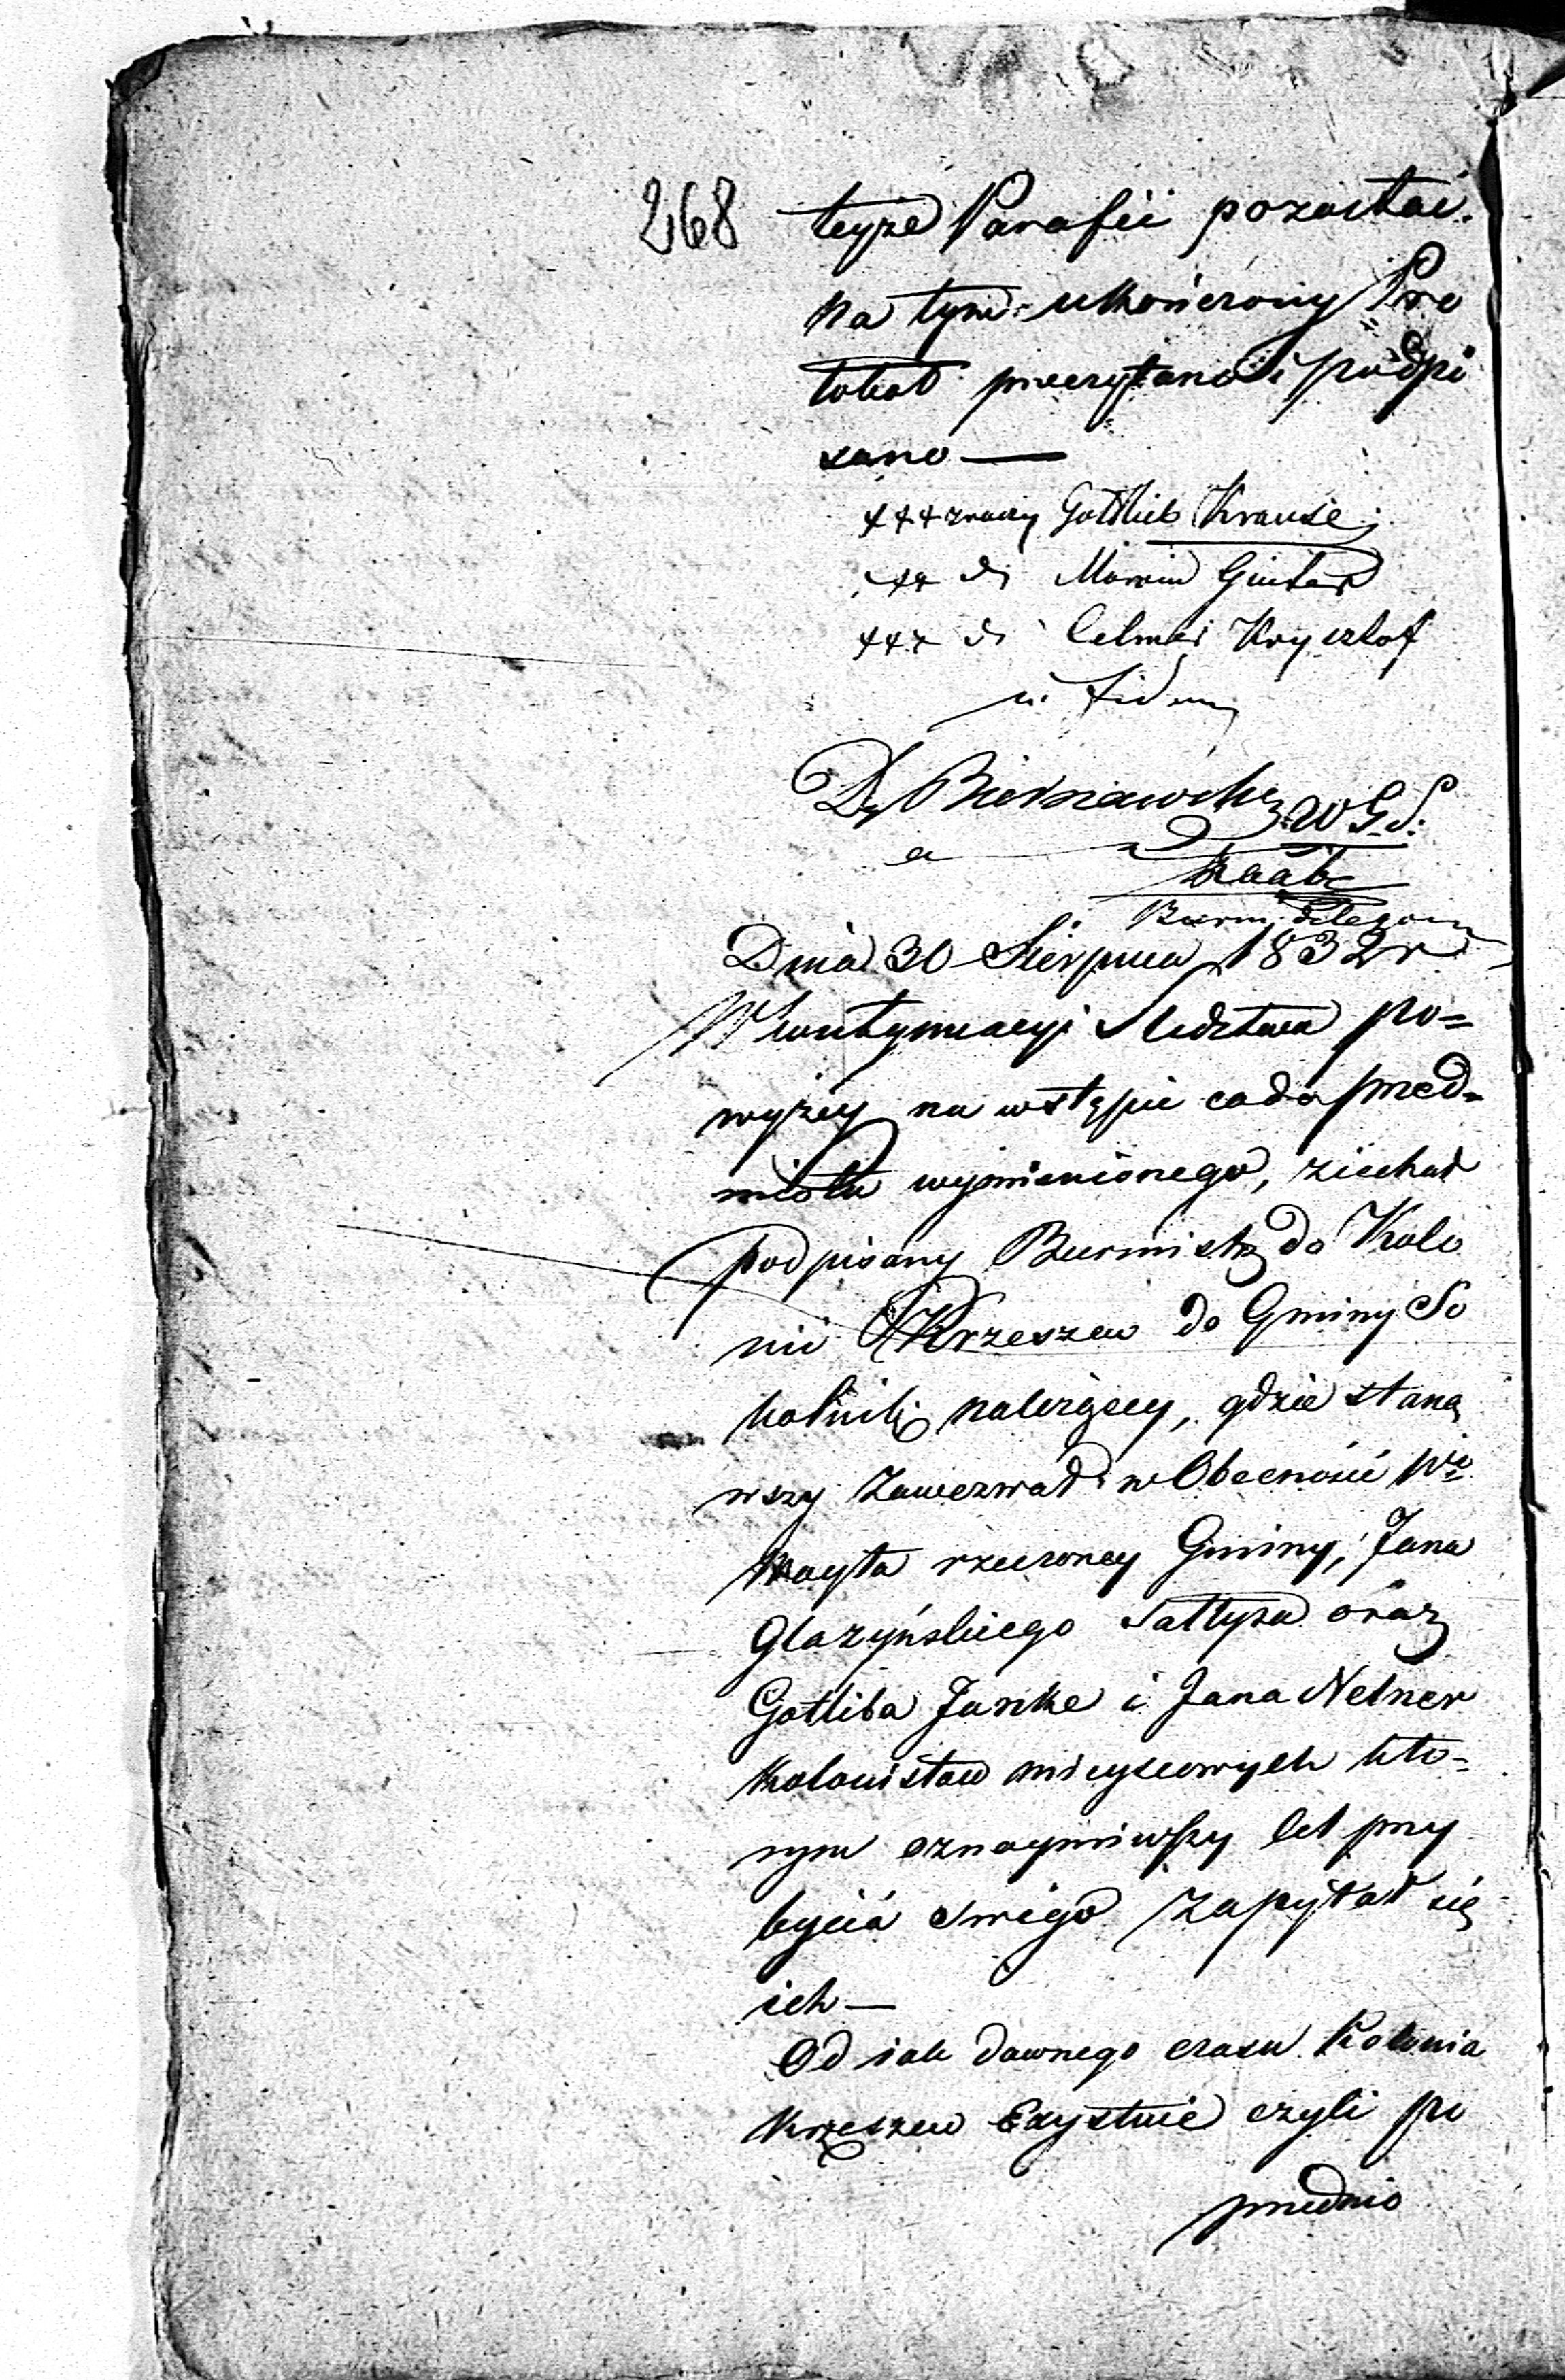 268
teyże Parafii pozostać.
Na tym ukończony Pro
tokuł przeczytano i podpi
sano —
+++ znaczy Gottlieb Krause
Marcin
+++ Krysztof
in fidem
W G S.
Raabe
Burm: delegow
Dnia 30 Sierpnia 1832 r
W kontynuacyi Sledztwa po=
wyżey na wstępie co do przed=
miotu wymienionego, ziechał
podpisany Burmistrz do Kolo
nii Krzeszew do Gminy So
kolnik należącey, gdzie staną
wszy zawezwał w Obecności
Woyta rzeczoney Gminy, Jana
Glazyńskiego Sałtysa oraz
Gotliba Janke i Jana Nelner
Kolonistow mieyscowych kto=
rym oznaymiwszy cel przy
bycia swego zapytał się
ich —
Od iak dawnego czasu Kolonia
Krzeszew Exystuie czyli po
przednio